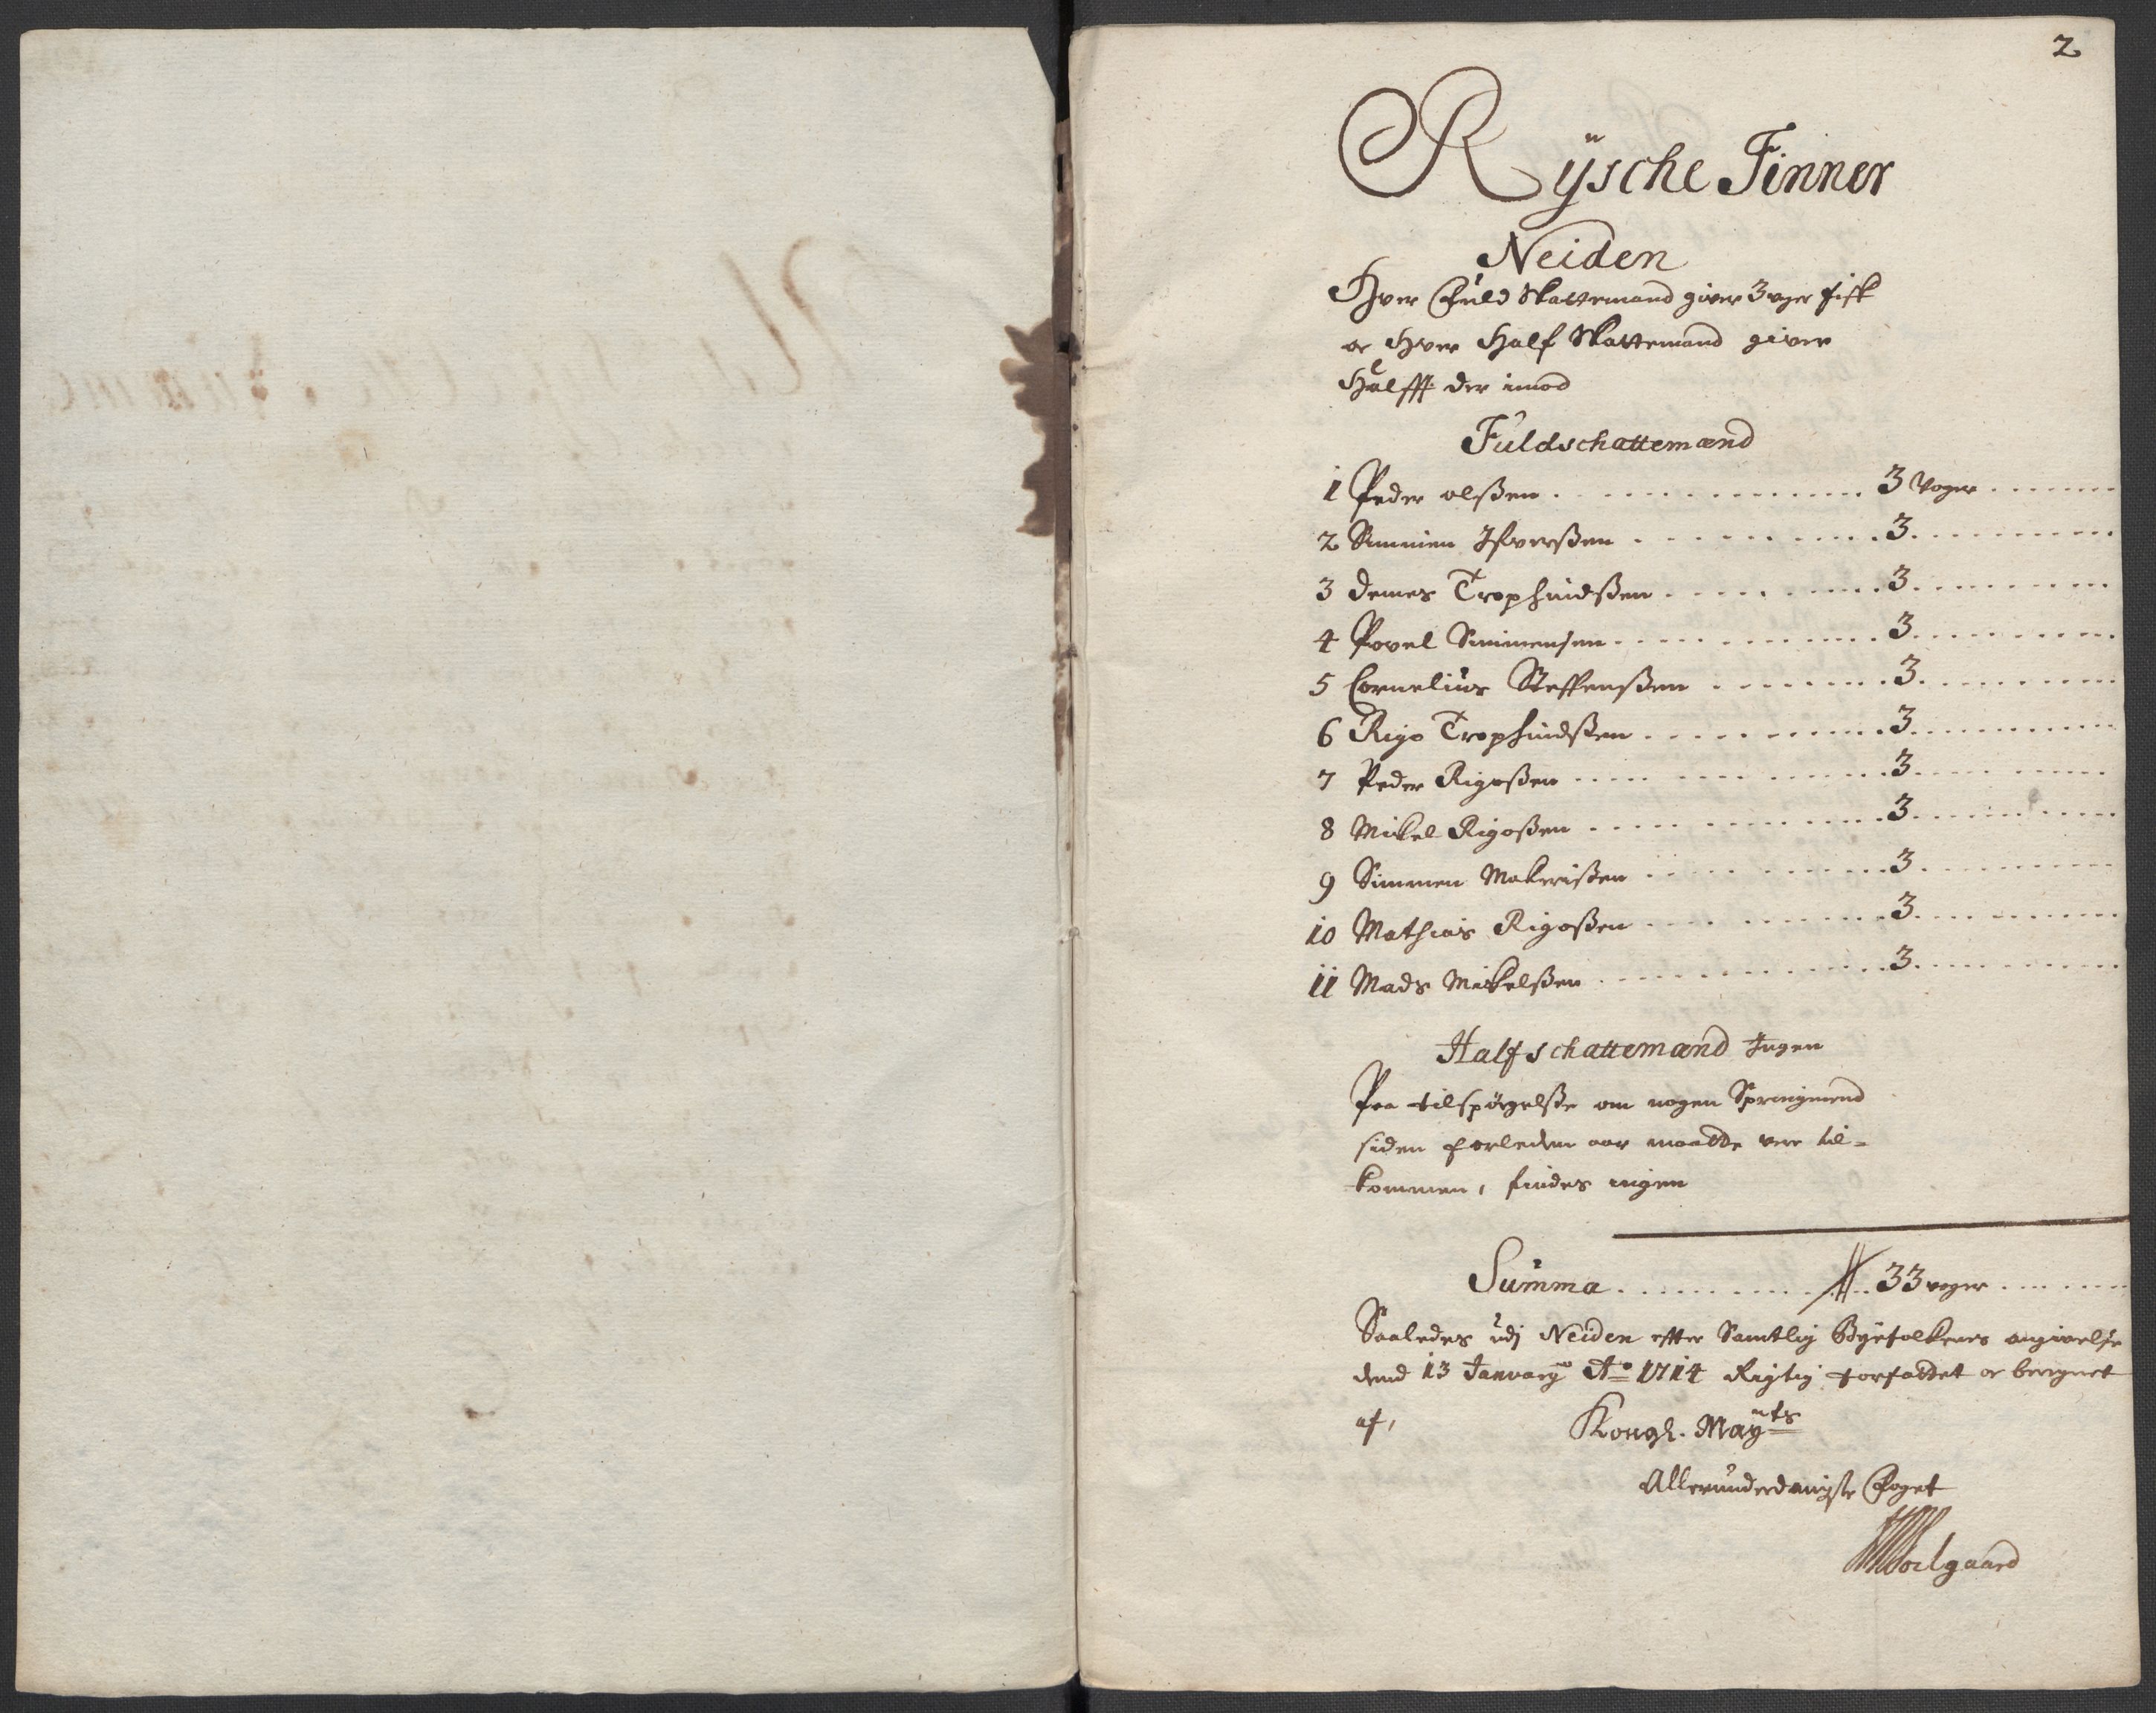 2
Rÿsche Finner
Neiden
Hver Fuld Skattemand giver 3 voger fisk
oc Hver Half Skattemand giver
Halfft der imod
Fuldschattemænd
1 Peder olßen 3 Voger
2 Simmen Ifverßen 3
3 Demes Trophindßen 3
4 Povel Simmensen 3
5 Cornelius Steffenßen 3
6 Rigo Trophindßen 3
7 Peder Rigoßen 3
8 Mikel Rigoßen 3
9 Simmen Makerißen 3
10 Mathias Rigoßen 3
11 Mads Mikelßen 3
Halfschattemænd Ingen
Paa tilspørgelße om nogen Springmend
siden forleden aar maatte vere til-
kommen, findes ingen
Summa 33 voger
Saaledes udj Neiden efter Samtlig Byefolkenes angivelse
dend 13 Januarÿ Ao 1714 Rigtig forfattet oc beregnet
af,
Kongl. Mayts
Allerunderdanigste Foget